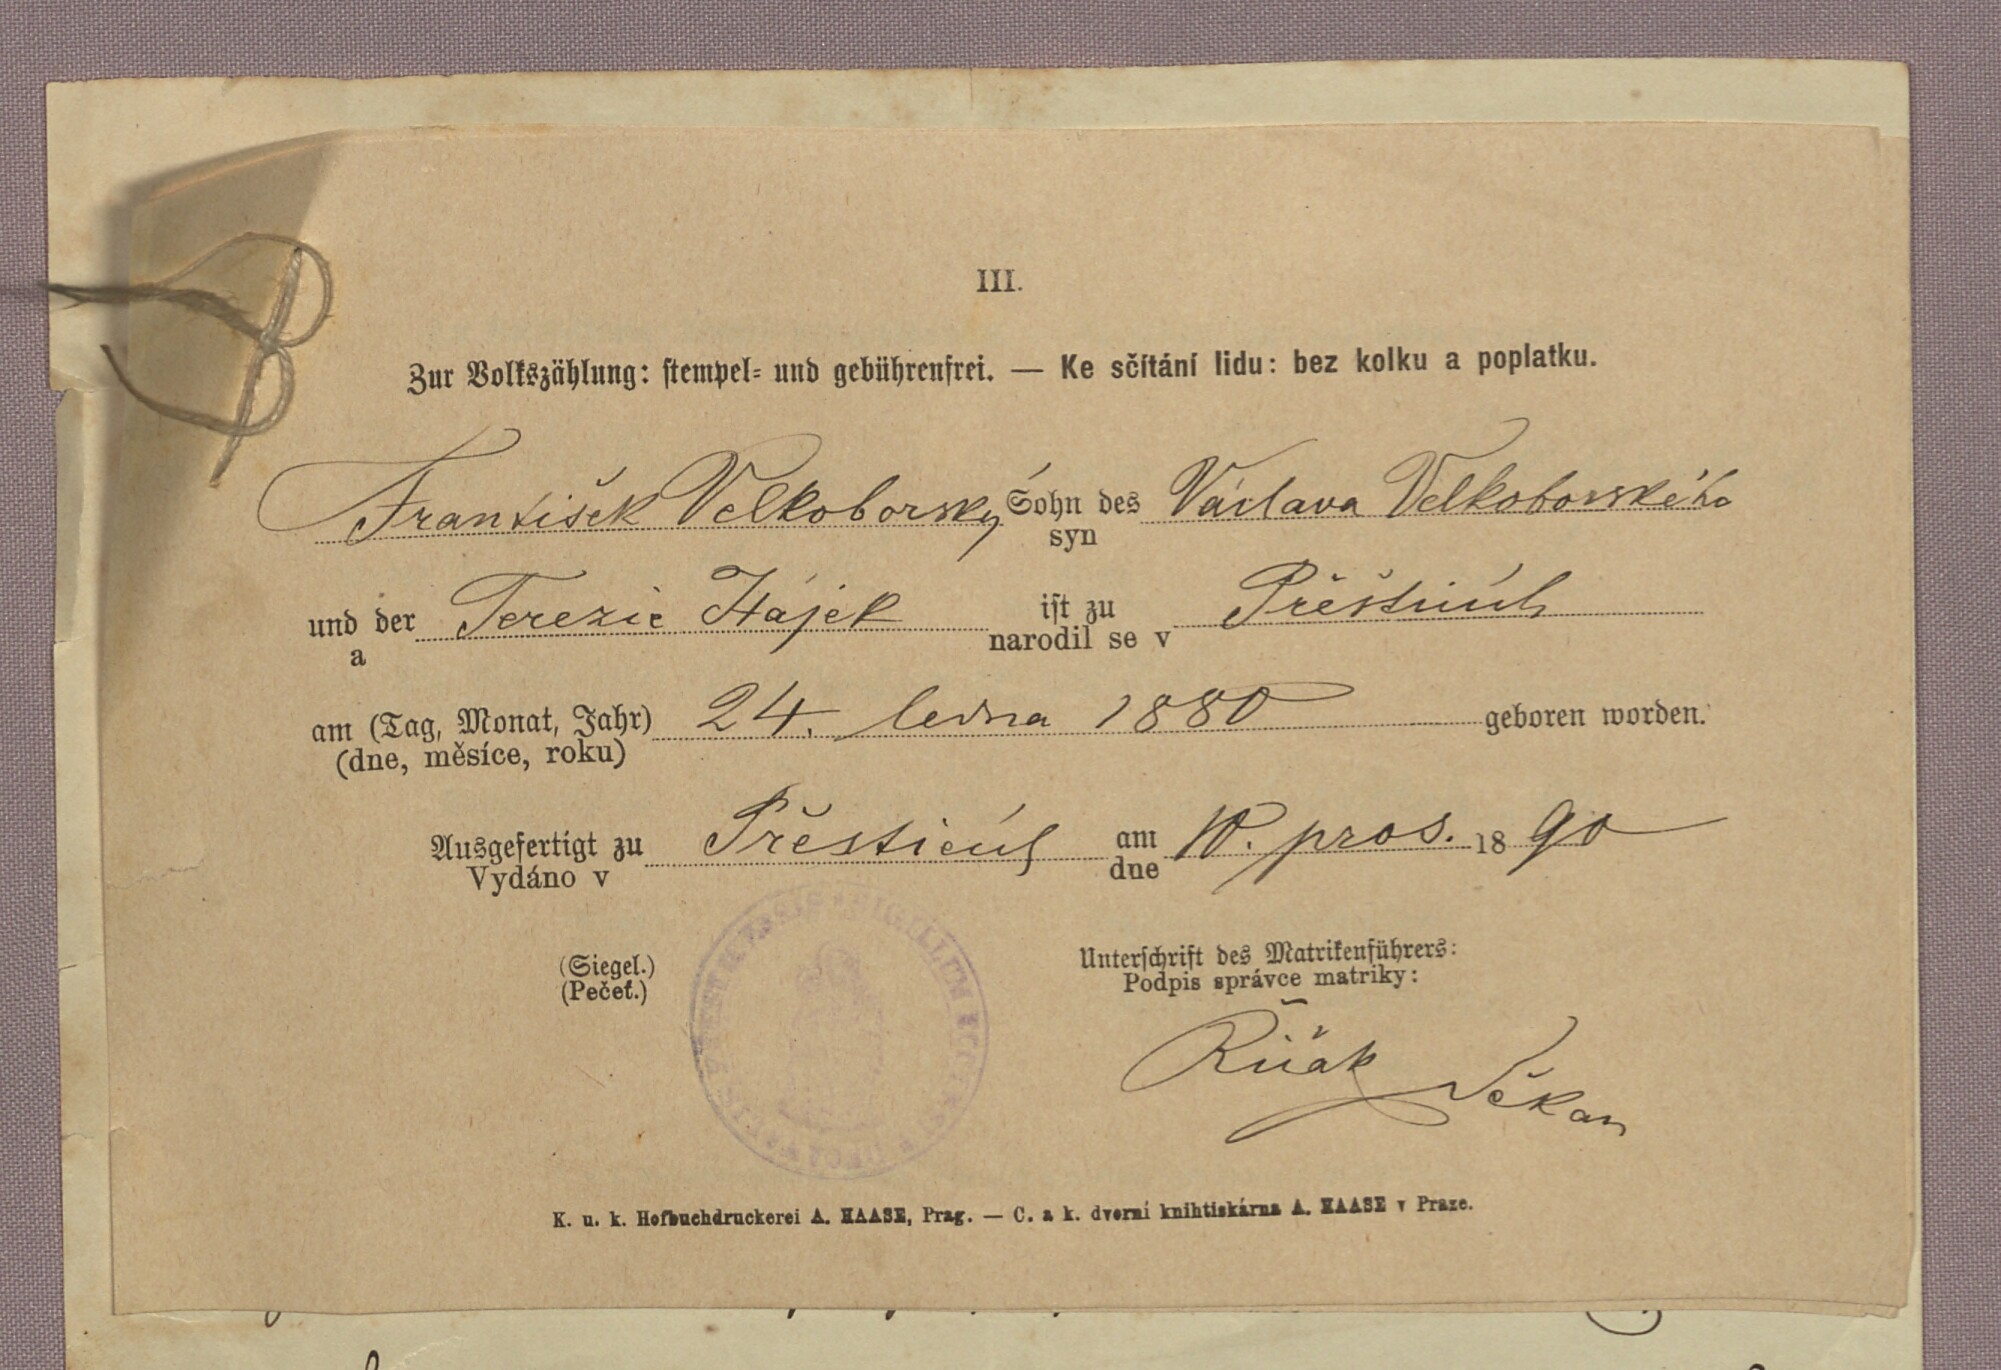 III.
Zur Volkszählung: stempel- und gebührenfrei. — Ke sčítání lidu: bez kolku a poplatku.
František Velkoborský Sohn des Václava Velkoborského
syn
und der Terezie Hájek ist zu Přěšticích
a narodil se v
am (Tag, Monat, Jahr) 24. ledna 1880 geboren worden.
(dne, měsíce, roku)
Ausgefertigt zu Přesticích am 10. pros. 1890
Vydáno v dne
(Siegel.) Unterschrift des Matrikenführers:
(Pečeť.) Podpis správce matriky:
SIGILLUM
děkan
K. u. k. Hofbuchdruckerei A. HAASE, Prag. — C. a k. dvorní knihtiskárna A. HAASE v Praze.